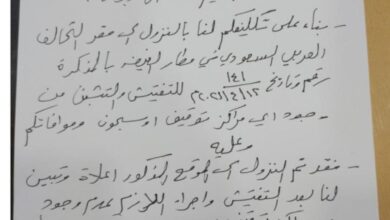 - بناء على تكليفكم لنا بالنزول الى مقر التحالف
العربي السعودي في مطار الغيضة بالمذكرة
رقم وتاريخ ١٤١ ٢٠٢١/٤/١٢ للتفتيش والتحقق من
وجود اي مراكز توقيف او سجون وموافاتكم
وعليه
- فقد تم النزول الى الموقع المذكور اعلاة وتبين
لنا بعد التفتيش واجراء اللازم عدم وجود